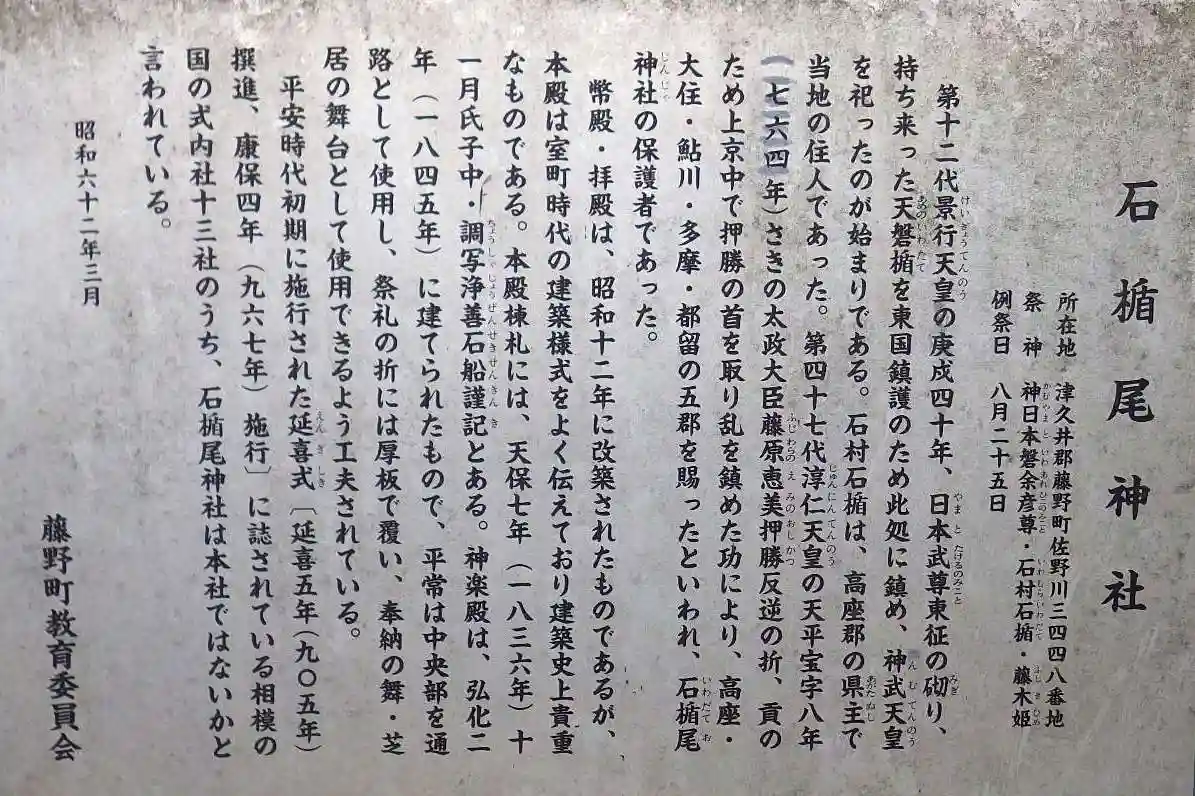 石楯尾神社
所在地 津久井郡藤野町佐野川三四四八番地
祭神 神日本磐余彦尊・石村石楯・藤木姫
例祭日 八月二十五日
第十二代景行天皇の庚戌四十年、日本武尊東征の砌り、
持ち来った天磐楯を東国鎮護のため此処に鎮め、神武天皇
を祀ったのが始まりである。石村石楯は、高座郡の県主で
当地の住人であった。第四十七代淳仁天皇の天平宝字八年
(一七六四年)さきの太政大臣藤原恵美押勝反逆の折、貢の
ため上京中で押勝の首を取り乱を鎮めた功により、高座・
大住・鮎川・多摩・都留の五郡を賜ったといわれ、石楯尾
神社の保護者であった。
幣殿・拝殿は、昭和十二年に改築されたものであるが、
本殿は室町時代の建築様式をよく伝えており建築史上貴重
なものである。本殿棟札には、天保七年(一八三六年)十
一月氏子中・調写浄善石船謹記とある。神楽殿は、弘化二
年(一八四五年)に建てられたもので、平常は中央部を通
路として使用し、祭礼の折には厚板で覆い、奉納の舞・芝
居の舞台として使用できるよう工夫されている。
平安時代初期に施行された延喜式〔延喜五年(九〇五年)
撰進、康保四年(九六七年)施行〕に誌されている相模の
国の式内社十三社のうち、石楯尾神社は本社ではないかと
言われている。
昭和六十二年三月
藤野町教育委員会